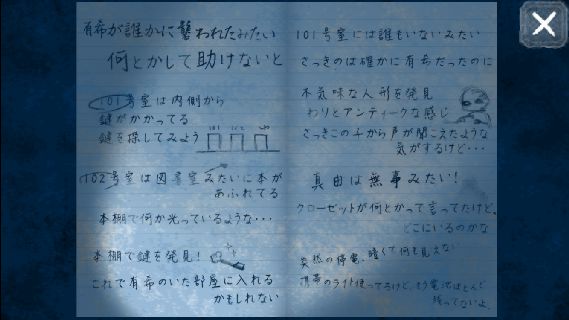 有希が誰かに襲われたみたい
何とかして助けないと
101号室は内側から
鍵がかかってる
鍵を探してみよう
101 102 103
102号室は図書室みたいに本が
あふれてる
本棚で何か光っているような・・・
本棚で鍵を発見!
これで有希のいた部屋に入れる
かもしれない
101号室には誰もいないみたい
さっきのは確かに有希だったのに
不気味な人形を発見
わりとアンティークな感じ
さっきこの子から声が聞こえたような
気がするけど・・・
真由は無事みたい!
クローゼットが何とかって言ってたけど、
どこにいるのかな
突然の停電、暗くて何も見えない
携帯のライト使ってるけど、もう電池ほとんど
残ってないよ